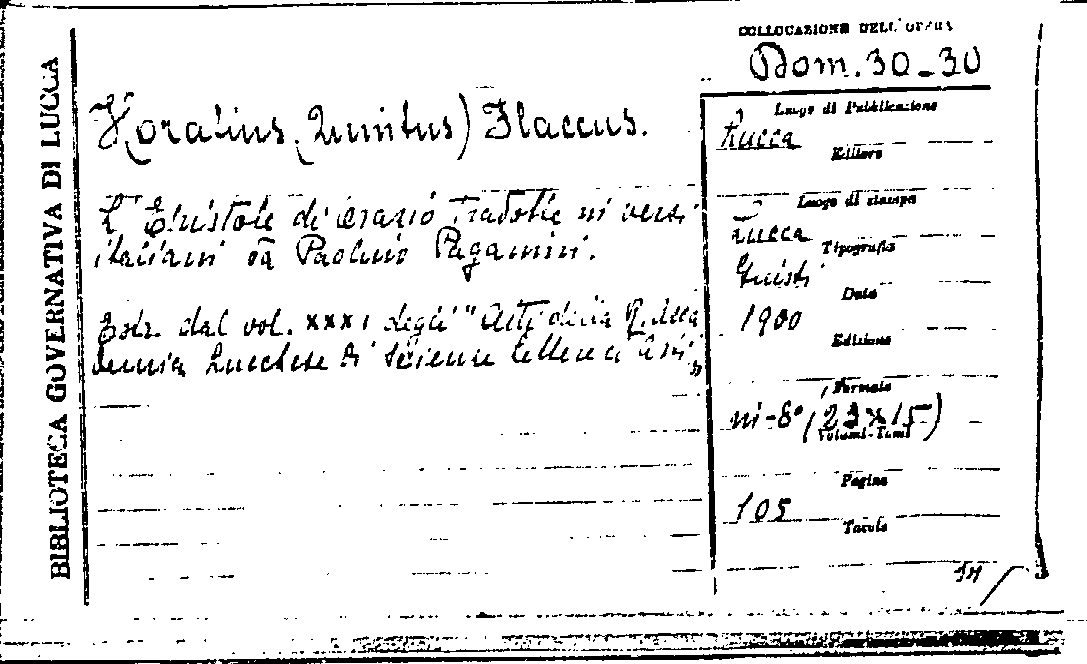 BIBLIOTECA GOVERNATIVA DI LUCCA
COLLOCAZIONE DELL'OPERA
Dom. 30-30
Horatius (Quintus) Flaccus.
L'Epistole di Orazio tradotte in versi
italiani da Paolino Paganini.
Estr. dal vol. XXXI degli "Atti della R. Acca
demia Lucchese di Scienze Lettere ed Arti"
Luogo di Pubblicazione
Lucca
Editore
Luogo di stampa
Lucca
Tipografia
Giusti
Data
1900
Edizione
Formato
in-8° (23x15)
Volumi-Tomi
Pagine
105
Tavole